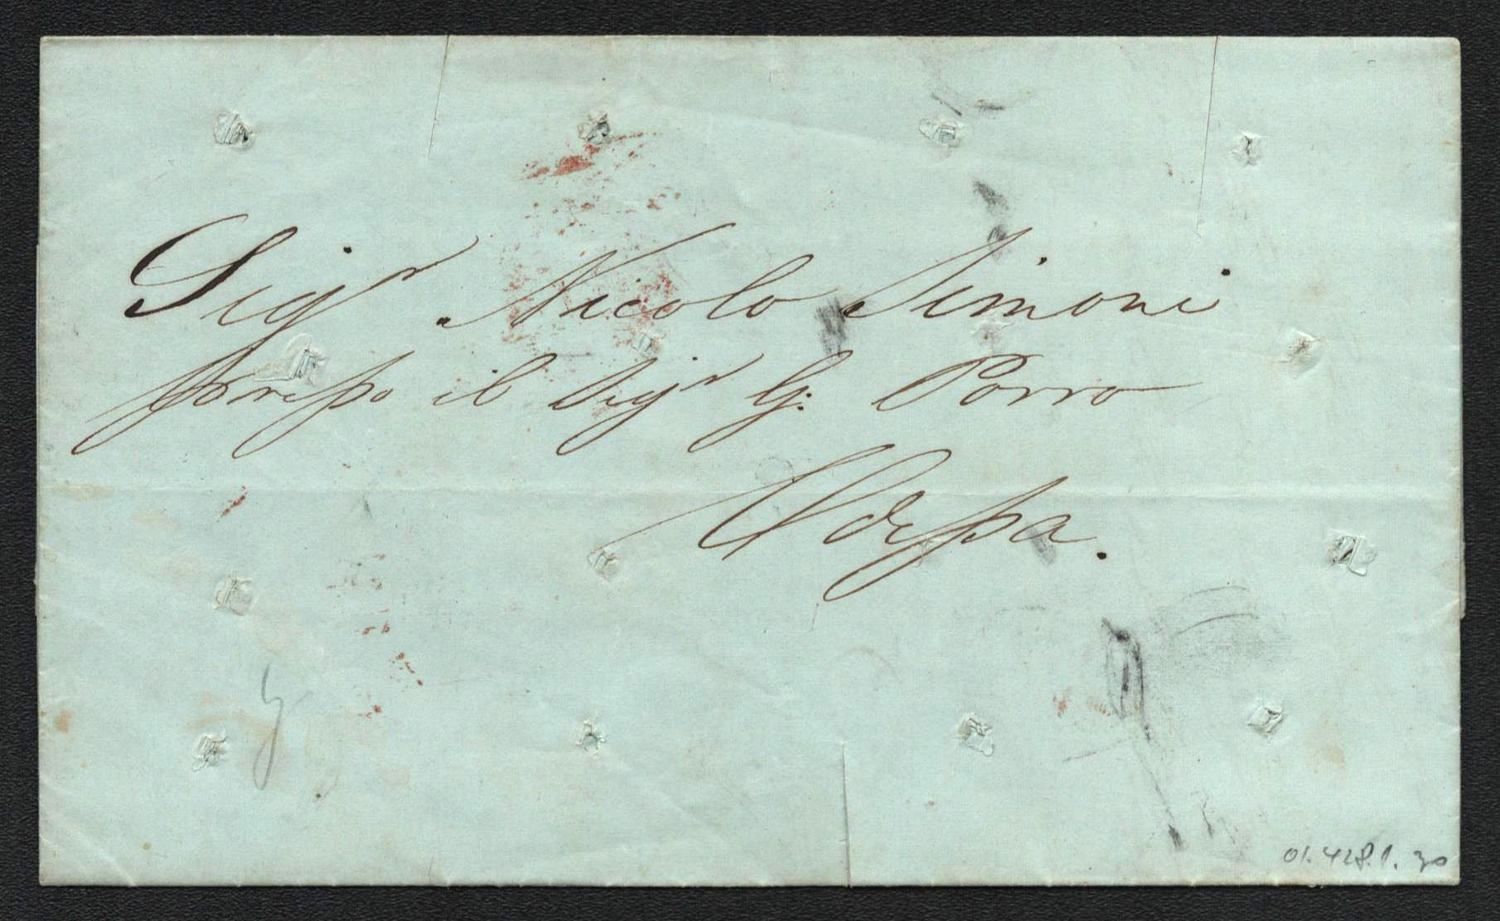 Sig.r Nicolo Simoni
presso il Sig.r G. Porro
Odessa.
01.428.1. 30